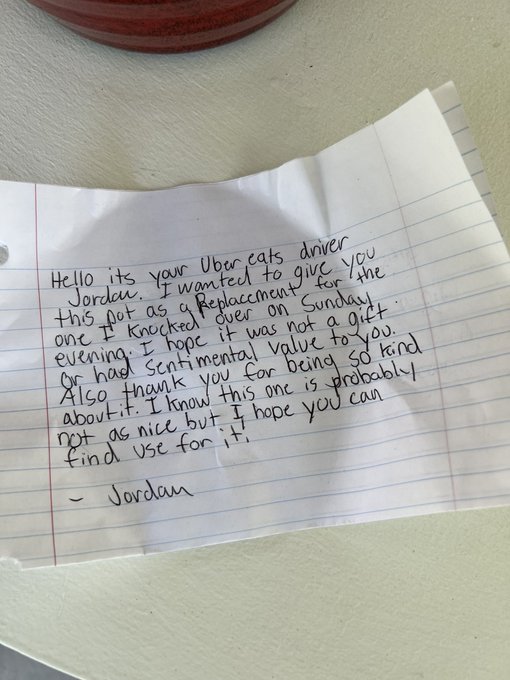 Hello its your Uber eats driver
Jordan. I wanted to give you
this pot as a Replacement for the
one I knocked over on Sunday
evening. I hope it was not a gift
or had sentimental value to you.
Also thank you for being so kind
about it. I know this one is probably
not as nice but I hope you can
find use for it.
- Jordan